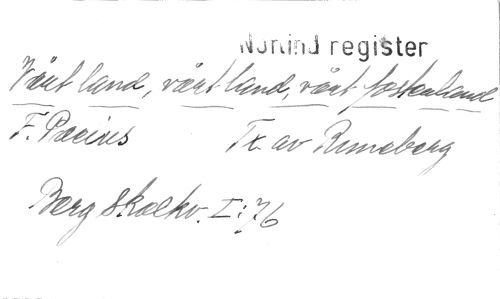 Norlind register
Vårt land, vårt land, vårt fosterland
F. Pacius Tx. av Runeberg
Berg Skolkv. I:76